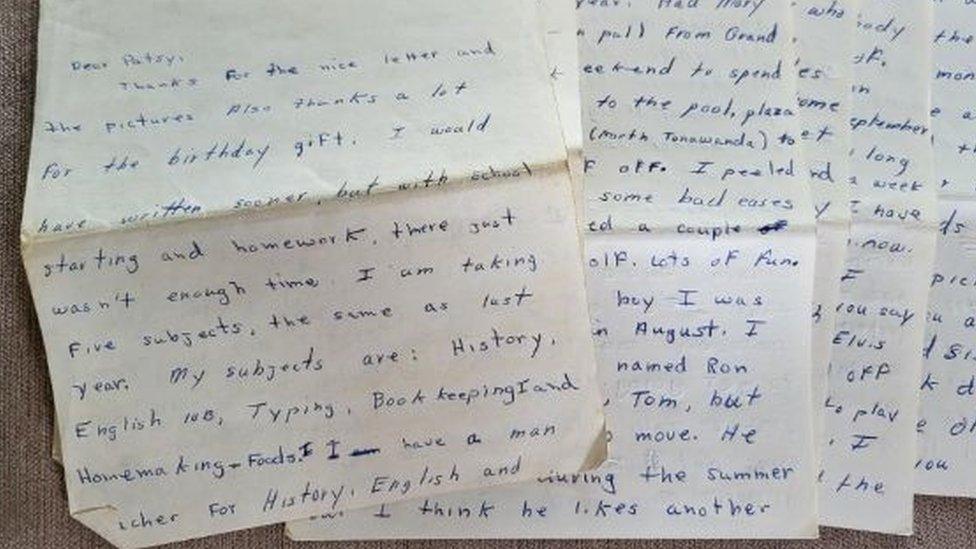 Dear Patsy,
Thanks for the nice letter and
the pictures Also thanks a lot
for the birthday gift. I would
have written sooner, but with school
starting and homework, there just
wasn't enough time. I am taking
five subjects, the same as last
year. My subjects are: History,
English 10B, Typing, Book keeping I and
Homemaking-Foods. I have a man
icher for History, English and
year. Had Mary
pal) from Grand
eekend to spend
to the pool, plaza
(North Tonawanda) to
off. I peeled
some bad cases
ed a couple of
olf. Lots of fun.
boy I was
in August. I
named Ron
, Tom, but
move. He
during the summer
I think he likes another
who
es
ome
et
nd
y
ody
in
eptember
long
a week
I have
now.
I
you say
Elvis
off
to play
I
the
the
mon
ds
pic
you